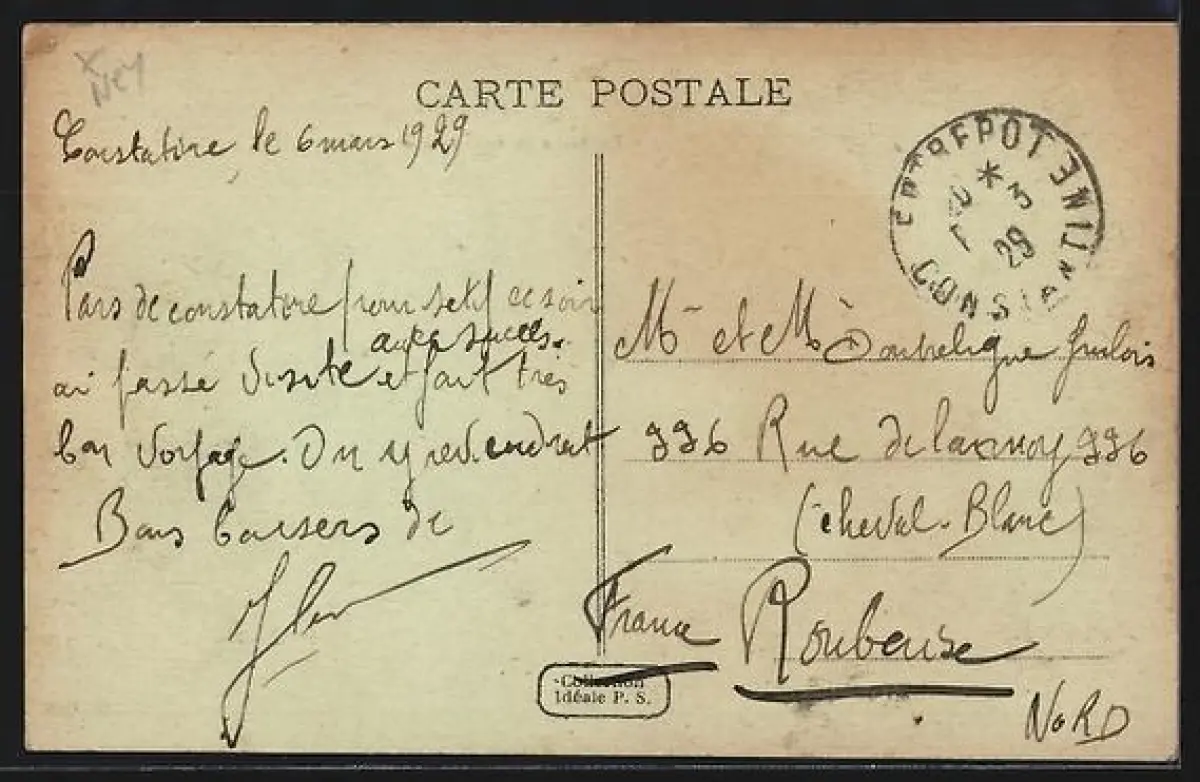 CARTE POSTALE
Constatine, le 6 mars 1929
Pars de constatine pour setif ce soir
avec succès.
ai passé visite et fait très
bon voyage. On y reviendrait
Bons baisers de
ENTREPOT CONSTANTINE
* 3 29
Mr et Me
336 Rue de Lannoy 336
(cheval-Blanc)
France Roubaix
NORD
Collection
Idéale P. S.